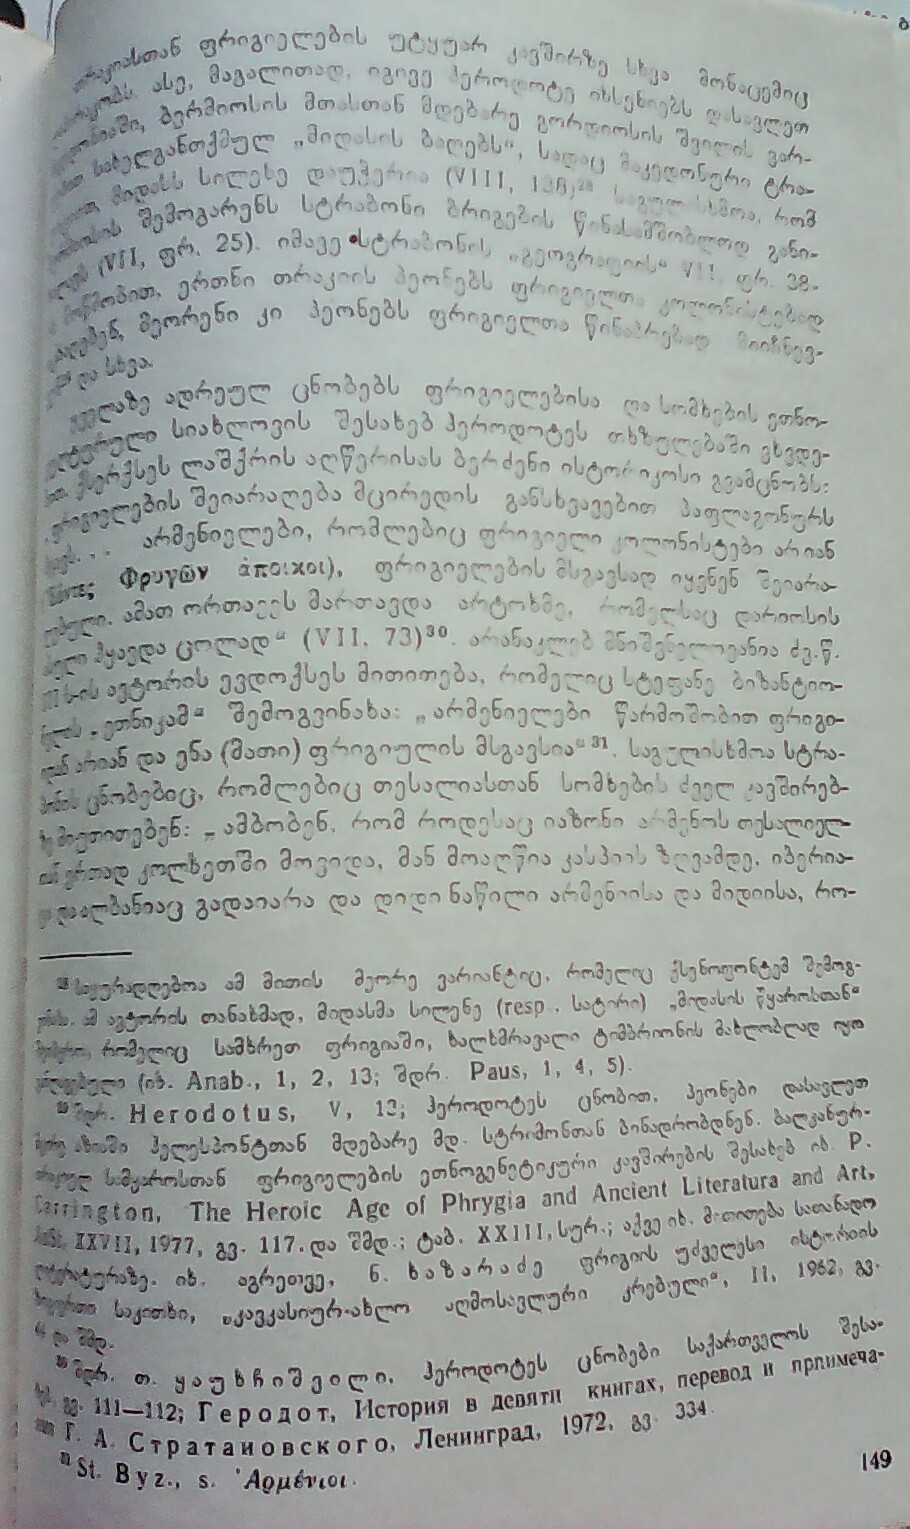 ფრიგიელების უტყუარ კავშირზე სხვა მონაცემიც
ასე, მაგალითად, იგივე ჰეროდოტე იხსენიებს დასავლეთ
ბერმიოსის მთასთან მდებარე გორდიოსის შვილის გარ-
სახელგანთქმულ „მიდასის ბაღებს“, სადაც მაკედონური ტრა-
მიდასს სილენე დაუჭერია (VIII, 138)²⁸ საგულისხმოა, რომ
შემოგარენს სტრაბონი ბრიგების წინასამშობლოდ განი-
(VII, ფრ. 25). იმავე სტრაბონის „გეოგრაფიის“ VII, ფრ. 38-
მოწმობით, ერთნი თრაკიის პეონებს ფრიგიელთა კოლონისტებად
მეორენი კი პეონებს ფრიგიელთა წინაპრებად მიიჩნევ-
და სხვა.
ყველაზე ადრეულ ცნობებს ფრიგიელებისა და სომხების ეთნო-
სიახლოვის შესახებ ჰეროდოტეს თხზულებაში ვხვდე-
ბით. ქსერქსეს ლაშქრის აღწერისას ბერძენი ისტორიკოსი გვამცნობს:
ფრიგიელების შეიარაღება მცირედის განსხვავებით პაფლაგონურს
არმენიელები, რომლებიც ფრიგიელი კოლონისტები არიან
Φρυγῶν ἄποικοι), ფრიგიელების მსგავსად იყვნენ შეიარა-
ღებული. ამათ ორთავეს მართავდა არტოხმე, რომელსაც დარიოსის
ჰყავდა ცოლად“ (VII, 73)³⁰. არანაკლებ მნიშვნელოვანია ძვ.წ.
ს-ის ავტორის ევდოქსეს მითითება, რომელიც სტეფანე ბიზანტიო-
ელის „ეთნიკამ“ შემოგვინახა: „არმენიელები წარმოშობით ფრიგი-
არიან და ენა (მათი) ფრიგიულის მსგავსია“³¹. საგულისხმოა სტრა-
ბონის ცნობებიც, რომლებიც თესალიასთან სომხების ძველ კავშირებ-
ზე მიუთითებენ: „ამბობენ, რომ როდესაც იაზონი არმენოს თესალიელ-
თან ერთად კოლხეთში მოვიდა, მან მოაღწია კასპიის ზღვამდე, იბერია-
და ალბანიაც გადაიარა და დიდი ნაწილი არმენიისა და მიდიისა, რო-
²⁸ საყურადღებოა ამ მითის მეორე ვარიანტიც, რომელიც ქსენოფონტემ შემოგ-
ამ ავტორის თანახმად, მიდასმა სილენე (resp. სატირი) „მიდასის წყაროსთან“
რომელიც სამხრეთ ფრიგიაში, ხალხმრავალი ტიმბრიონის მახლობლად იყო
(იხ. Anab., 1, 2, 13; შდრ. Paus, 1, 4, 5).
²⁹ შდრ. Herodotus, V, 13; ჰეროდოტეს ცნობით, პეონები დასავლეთ
ჰელესპონტთან მდებარე მდ. სტრიმონთან ბინადრობდნენ. ბალკანურ-
სამყაროსთან ფრიგიელების ეთნოგენეტიკური კავშირების შესახებ იხ. P.
Carrington, The Heroic Age of Phrygia and Ancient Literatura and Art,
XXVII, 1977, გვ. 117. და შმდ.; ტაბ. XXIII, სურ.; აქვე იხ. მითითება სათანადო
ლიტერატურაზე. იხ. აგრეთვე, ნ. ხაზარაძე ფრიგიის უძველესი ისტორიის
საკითხი, „კავკასიურ-ახლო აღმოსავლური კრებული“, II, 1962, გვ.
და შმდ.
³⁰ შდრ. თ. ყაუხჩიშვილი, ჰეროდოტეს ცნობები საქართველოს შესა-
ხებ, გვ. 111—112; Геродот, История в девяти книгах, перевод и примеча-
Г. А. Стратановского, Ленинград, 1972, გვ. 334.
³¹ St. Byz., s. Ἀρμένιοι.
149